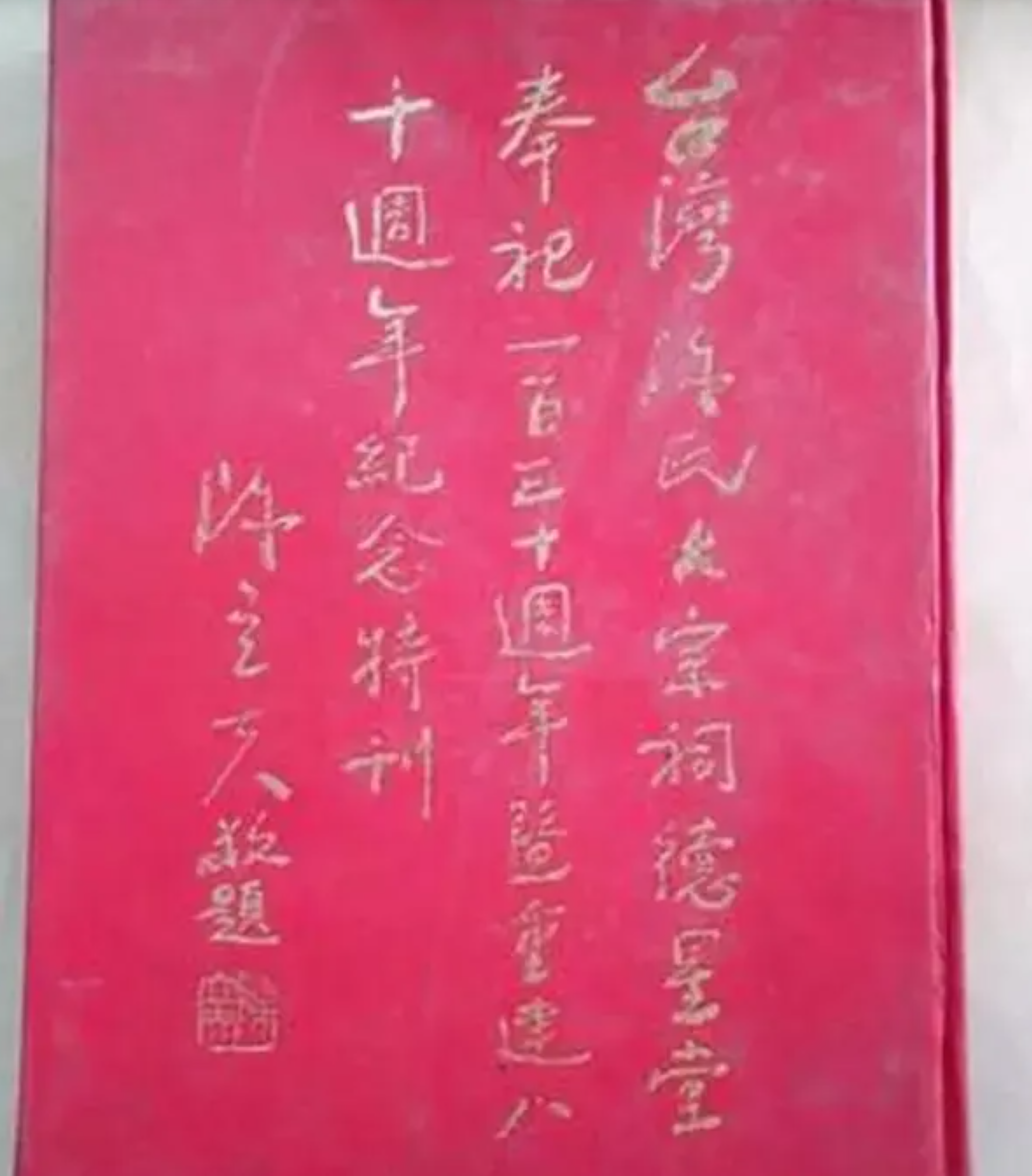 台灣陳氏大宗祠德星堂
奉祀一百三十週年暨重建八
十週年紀念特刊
陳立夫敬題